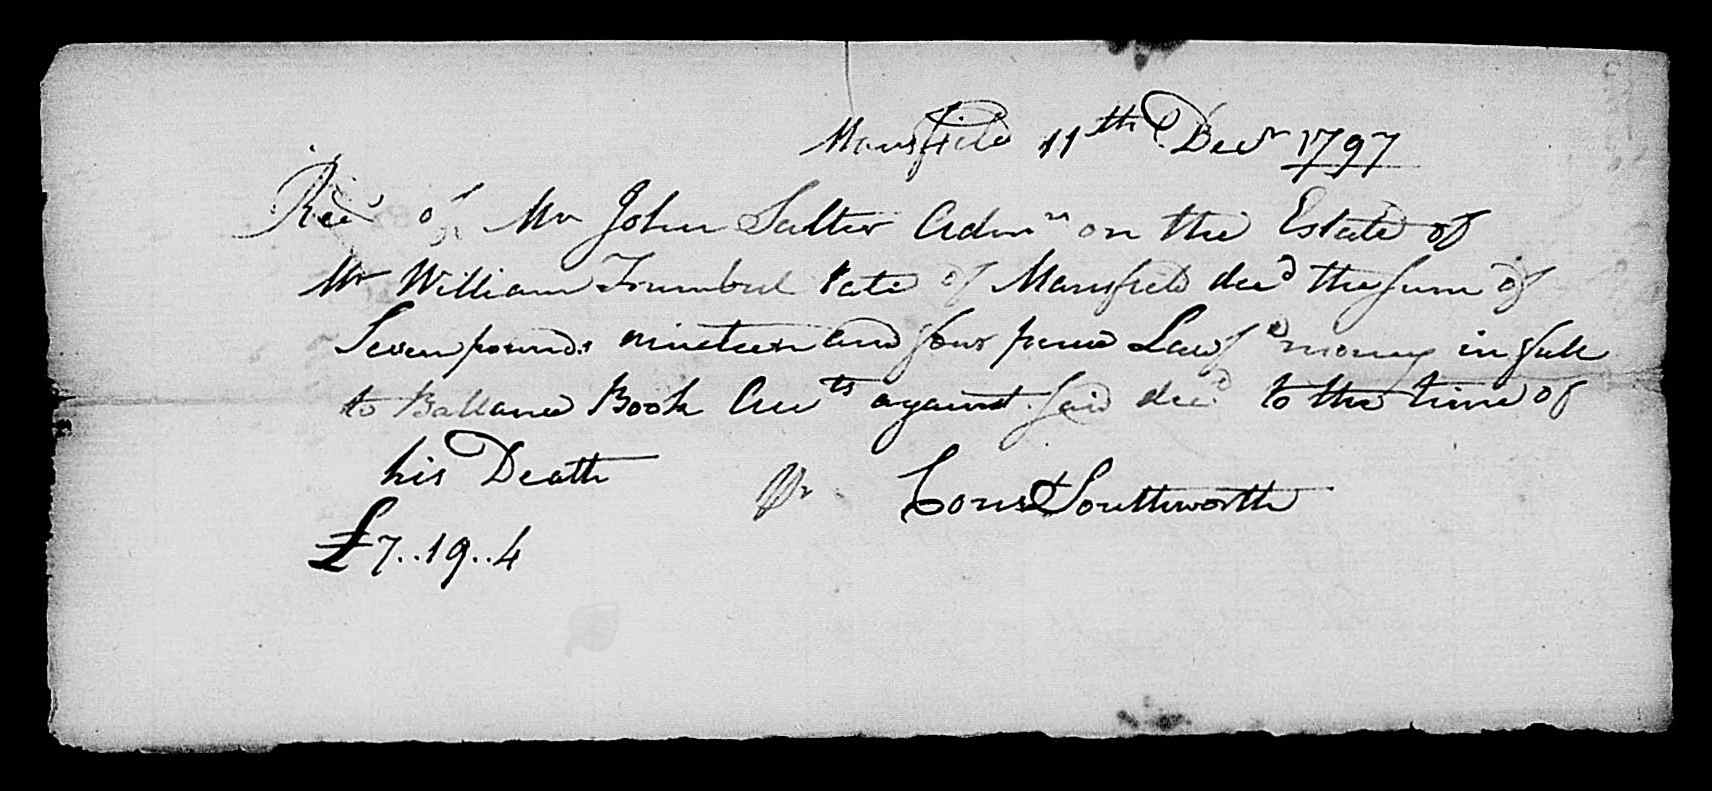 Mansfield 11th Decr 1797
Recd of Mr John Salter Admr on the Estate of
Mr William Trumbul late of Mansfield decd the sum of
Seven pounds nineteen and four pence Lawfl money in full
to Ballance Book Accts against said decd to the time of
his Death pr Const Southworth
£7..19..4